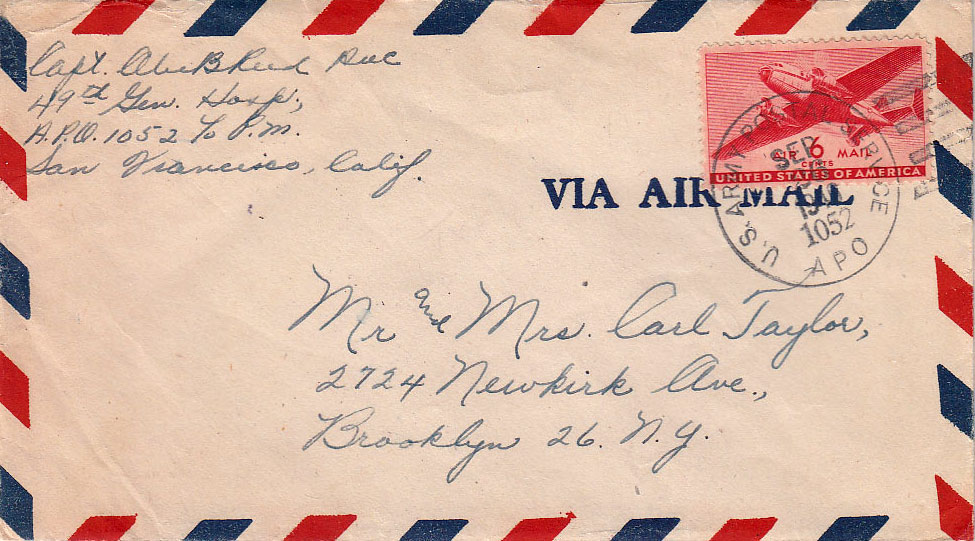 Capt. Abe B Reed
49th Gen. Hosp.,
A.P.O. 1052 % P.M.
San Francisco, Calif.
AIR 6 MAIL
CENTS
UNITED STATES OF AMERICA
VIA AIR MAIL
U.S. ARMY POSTAL SERVICE
SEP
1052
APO
Mr and Mrs. Carl Taylor,
2724 Newkirk Ave.,
Brooklyn 26. N.Y.